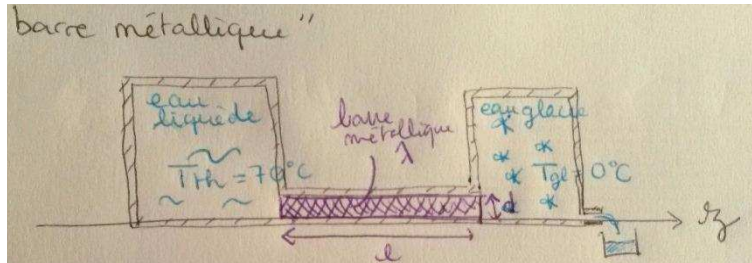 barre métallique"
eau
liquide
T_th = 70°C
barre
métallique
λ
eau glacée
T_gl = 0°C
d
l